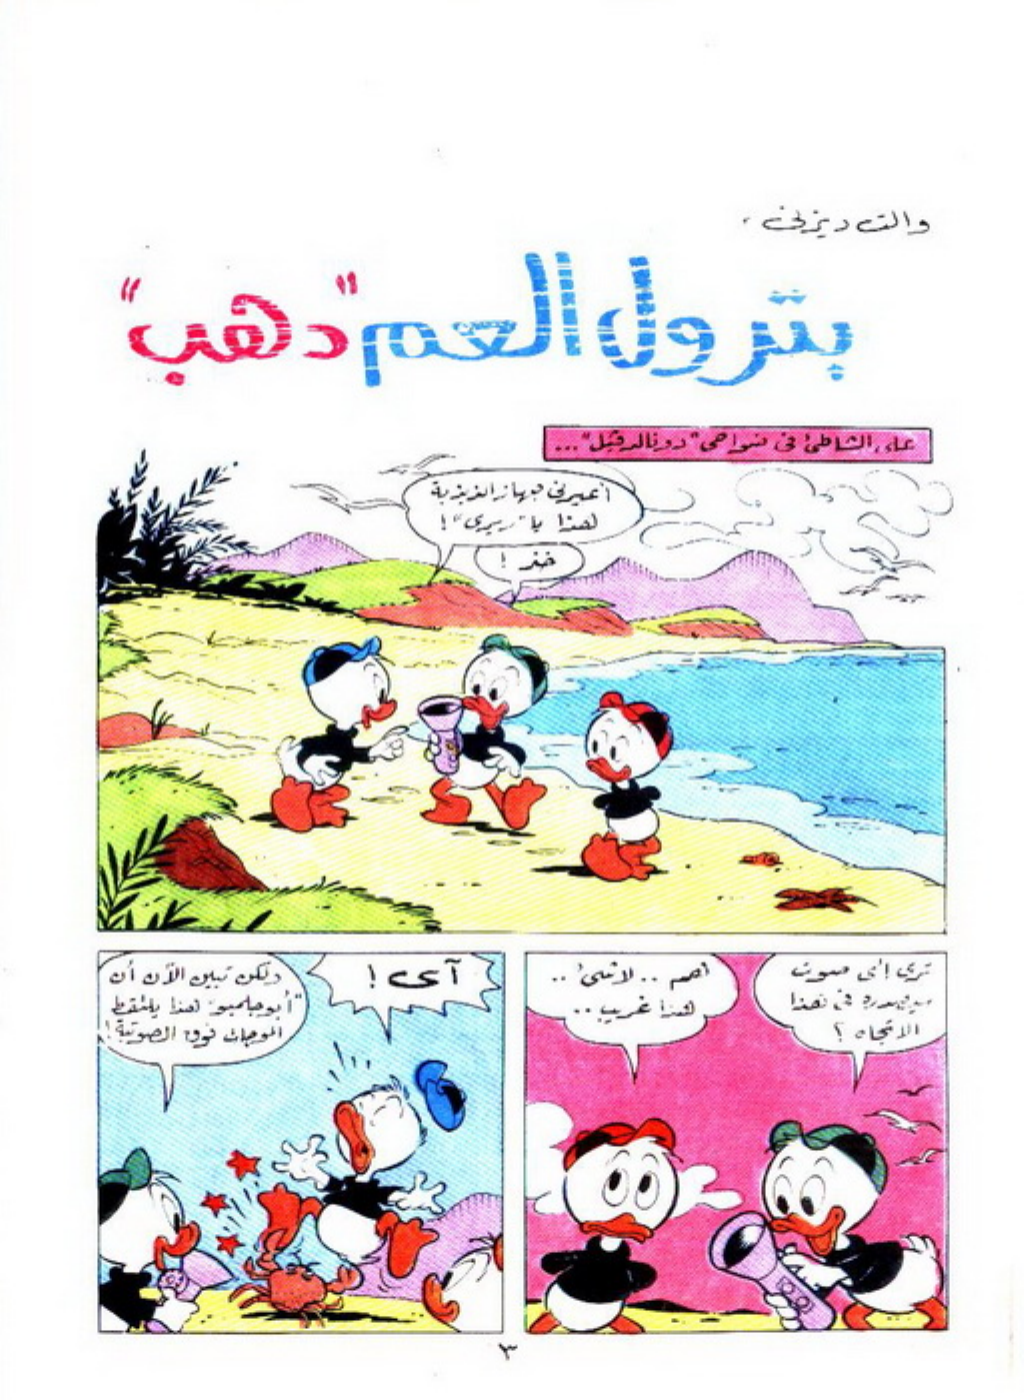 والت ديزني
بترول العم "دهب"
على الشاطئ في ضواحي "دونالدڤيل"...
أعيرني جهاز الذبذبة
هذا يا "ريري"!
خذ!
ترى إلى صوت
في هذا
الاتجاه؟
اهمم.. لا شئ..
هذا غريب..
آى!
ولكن تبين الآن أن
"أبو جلمبو" هذا يلتقط
الموجات فوق الصوتية!
٣